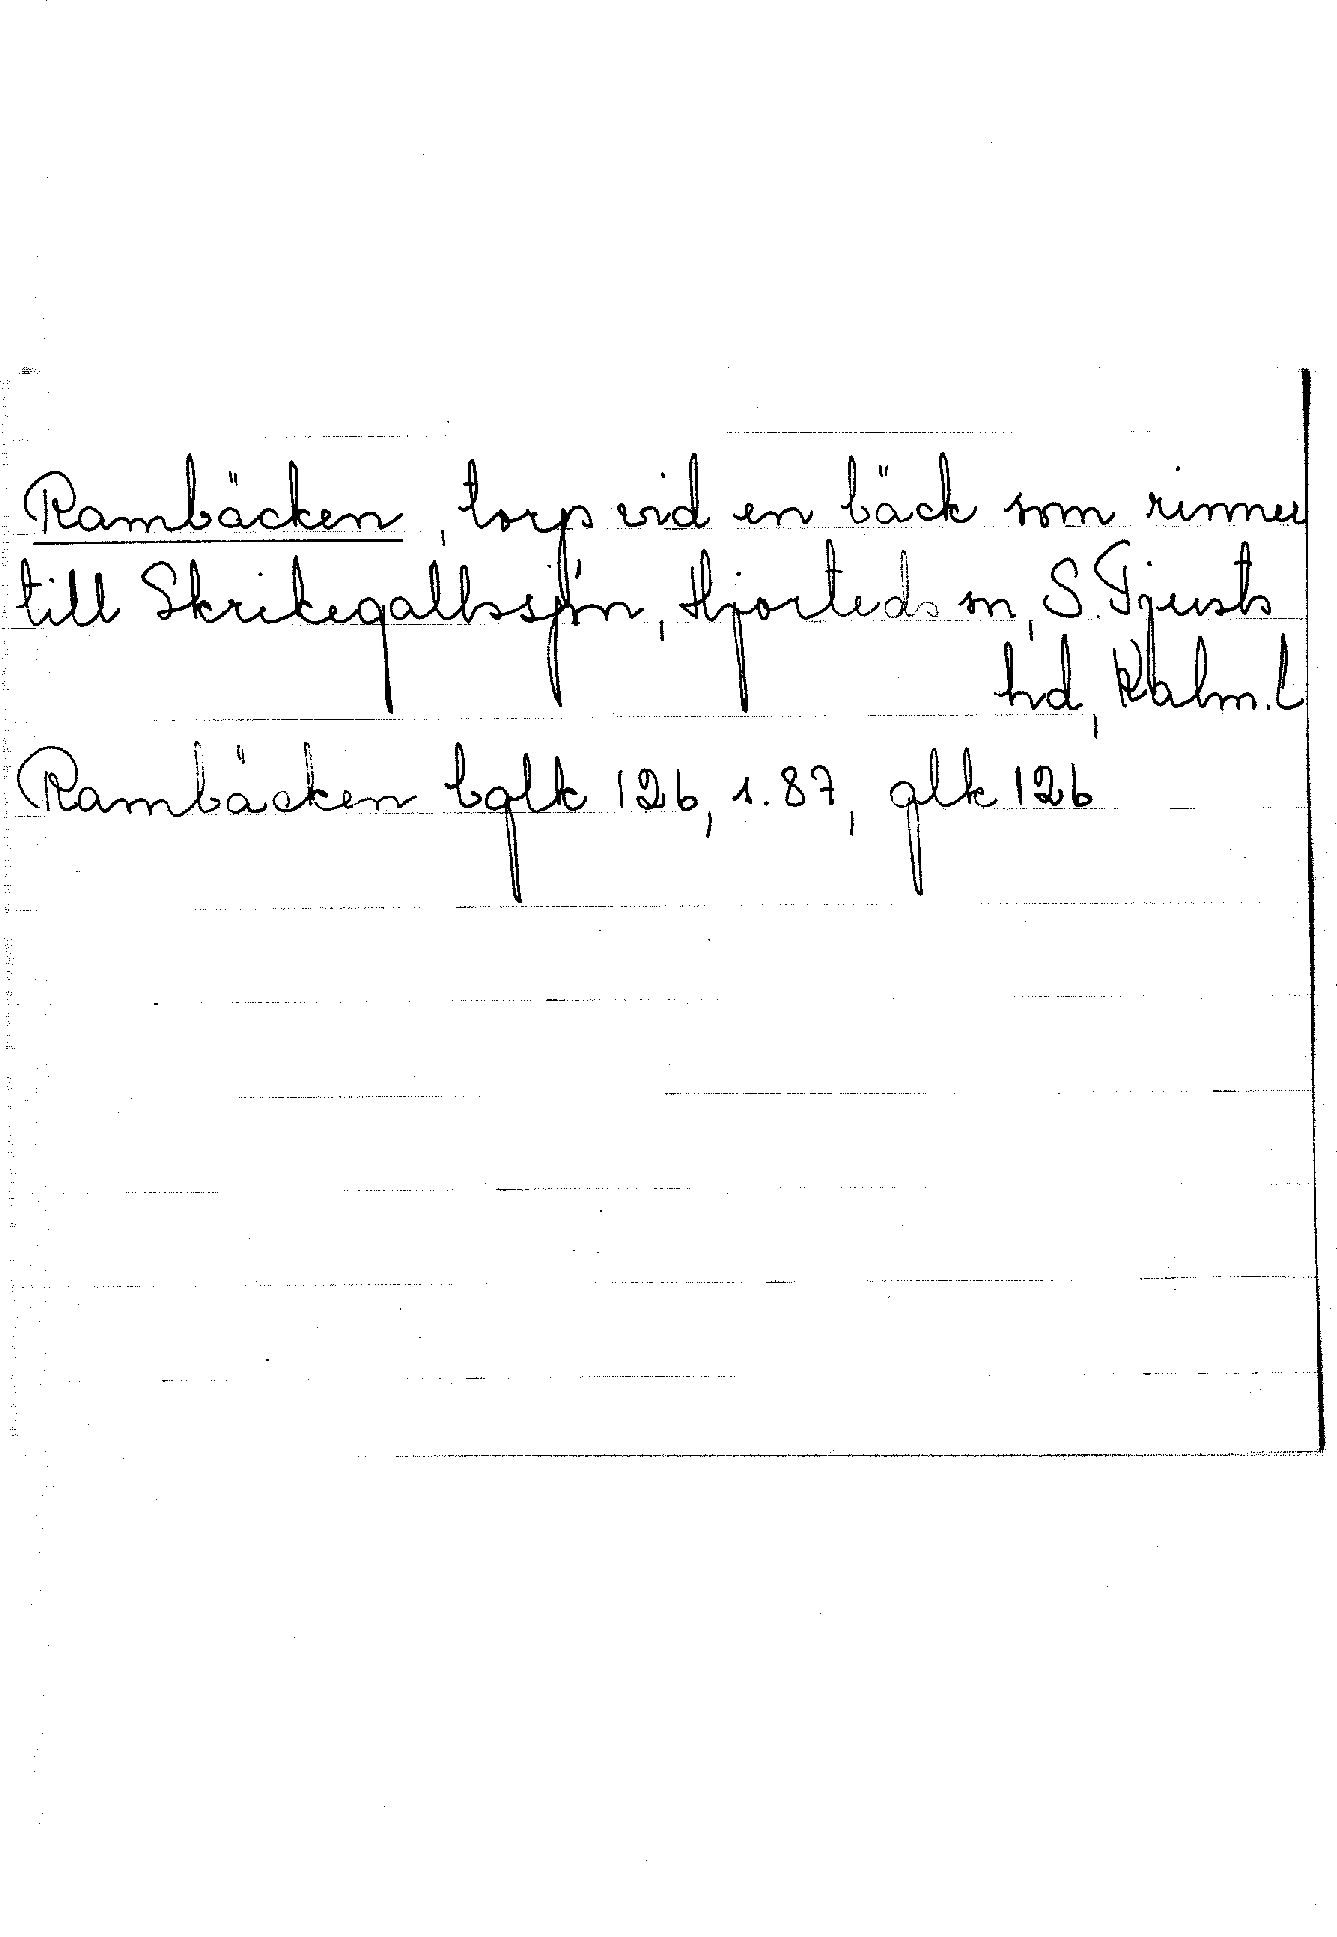 Rambäcken, torp vid en bäck som rinner
till Skrikegalbssjön, Hjorteds sn, S. Tjusts
hd, Kalm. l
Rambäcken bglk 12b, s. 87, glk 12b